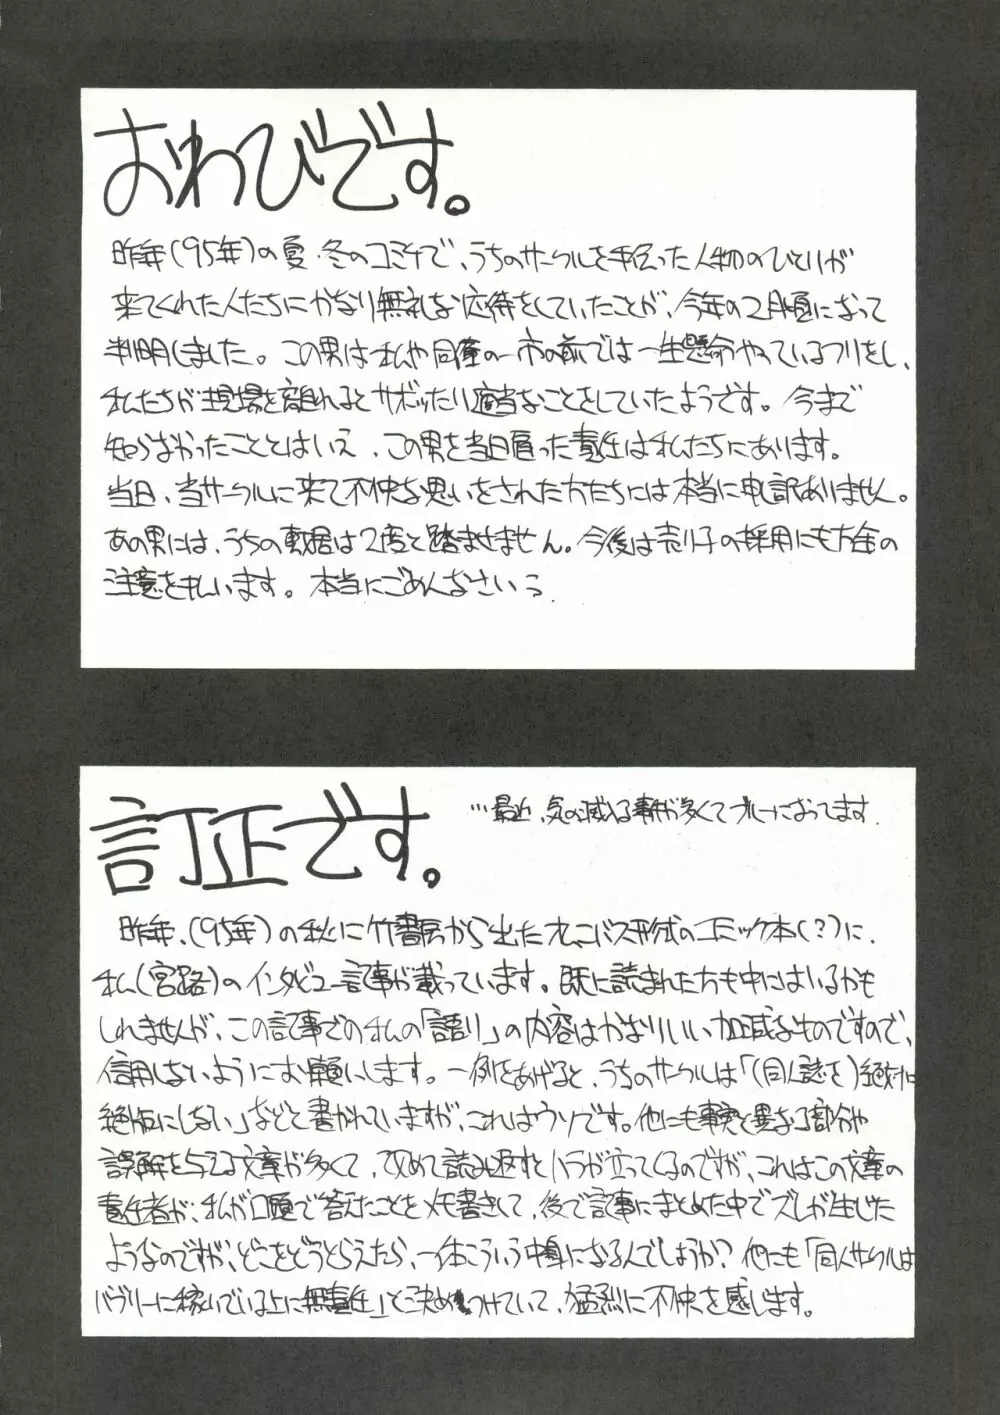 おわびです。
昨年(95年)の夏・冬のコミケで、うちのサークルを手伝った人物のひとりが
来てくれた人たちにかなり無礼な応待をしていたことが、今年の2月頃になって
判明しました。この男は私や同僚の一市の前では一生懸命やっているフリをし、
私たちが現場を離れるとサボッたり適当なことをしていたようです。今まで
知らなかったこととはいえ、この男を当日雇った責任は私たちにあります。
当日、当サークルに来て不快な思いをされた方たちには本当に申し訳ありません。
あの男には、うちの敷居は2度と踏ませません。今後は売り子の採用にも万全の
注意を払います。本当にごめんなさいっ
訂正です。
…最近、気の滅入る事が多くてブルーになってます。
昨年、(95年)の秋に竹書房から出たオムニバス形式のコミック本(?)に、
私(宮路)のインタビュー記事が載っています。既に読まれた方も中にはいるかも
しれませんが、この記事での私の「語り」の内容はかなりいい加減なものですので、
信用しないようにお願いします。一例をあげると、うちのサークルは「(同人誌を)絶対に
絶版にしない」などと書かれていますが、これはウソです。他にも事実と異なる部分や
誤解を与える文章が多くて、改めて読み返すとハラが立ってくるのですが、これはこの文章の
責任者が、私が口頭で答えたことをメモ書きして、後で記事にまとめた中でズレが生じた
ようなのですが、どこをどうとらえたら、一体こういう中身になるんでしょうか?他にも「同人サークルは
バブリーに稼いでいる上に無責任」と決めつけていて、猛烈に不快を感じます。